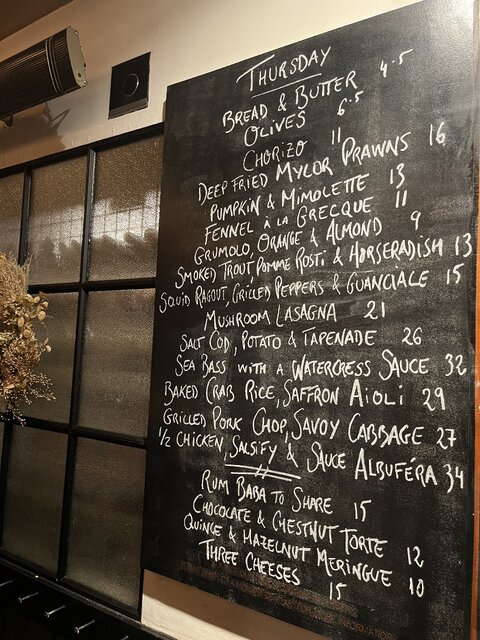 THURSDAY
BREAD & BUTTER 4.5
OLIVES 6.5
CHORIZO 11
DEEP FRIED MYLOR PRAWNS 16
PUMPKIN & MIMOLETTE 13
FENNEL À LA GRECQUE 11
GRUMOLO, ORANGE & ALMOND 9
SMOKED TROUT POMME ROSTI & HORSERADISH 13
SQUID RAGOUT, GRILLED PEPPERS & GUANCIALE 15
MUSHROOM LASAGNA 21
SALT COD, POTATO & TAPENADE 26
SEA BASS WITH A WATERCRESS SAUCE 32
BAKED CRAB RICE, SAFFRON AIOLI 29
GRILLED PORK CHOP, SAVOY CABBAGE 27
1/2 CHICKEN, SALSIFY & SAUCE ALBUFÉRA 34
RUM BABA TO SHARE 15
CHOCOLATE & CHESTNUT TORTE 12
QUINCE & HAZELNUT MERINGUE 10
THREE CHEESES 15